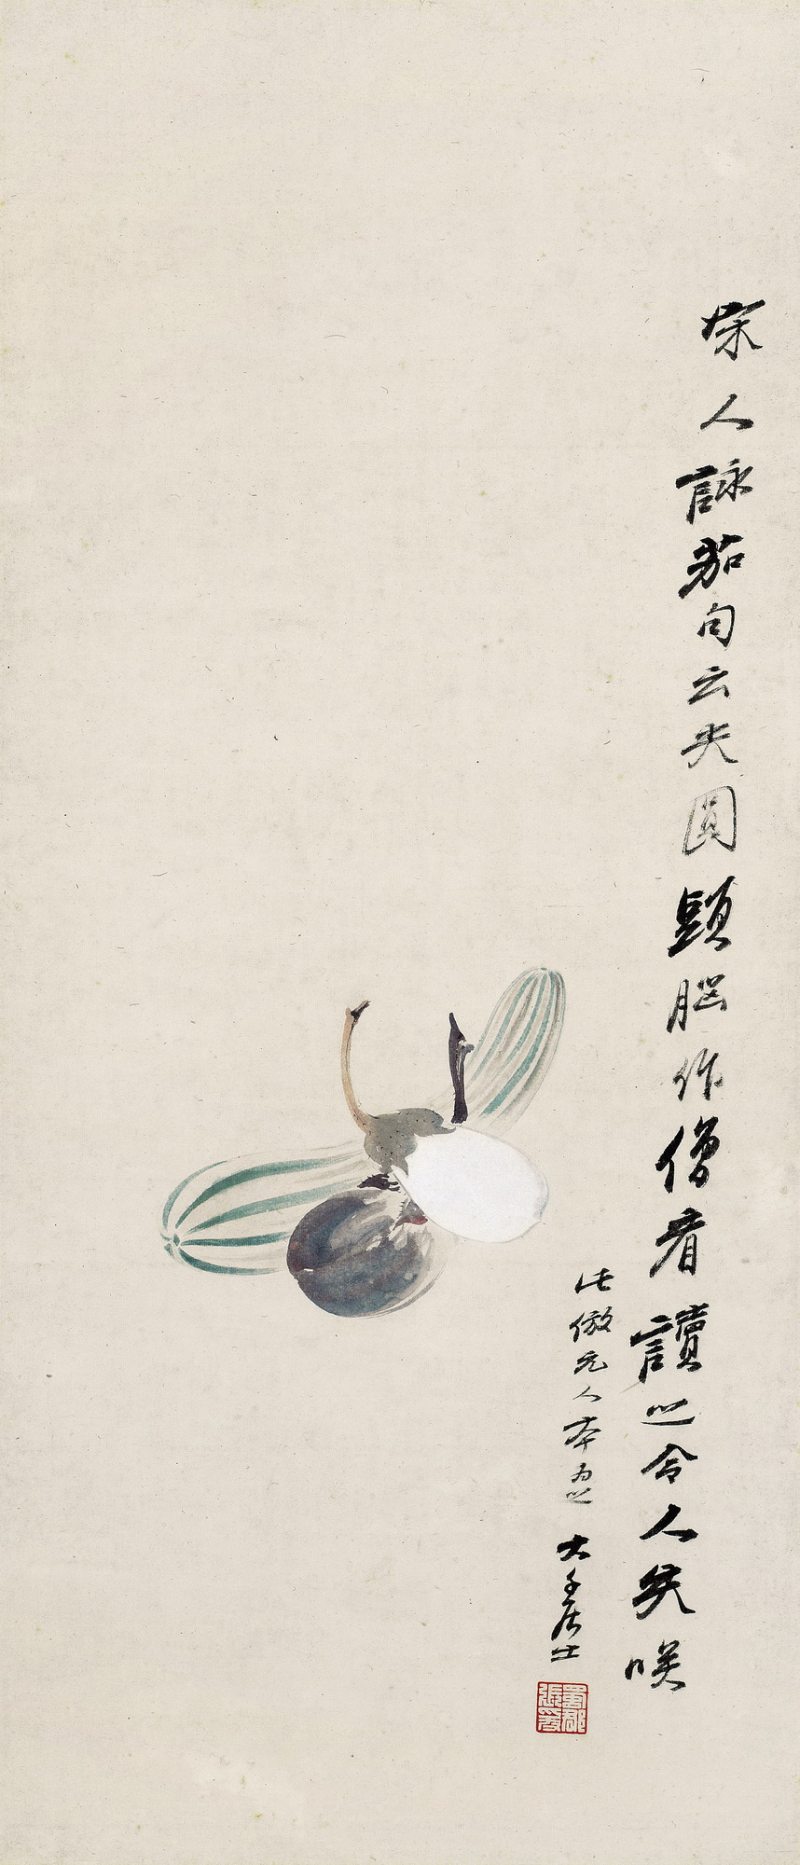 宋人詠茄句云光圓頭腦作僧看讀之令人失咲
此倣元人本為之 大千居士
蜀郡張爰